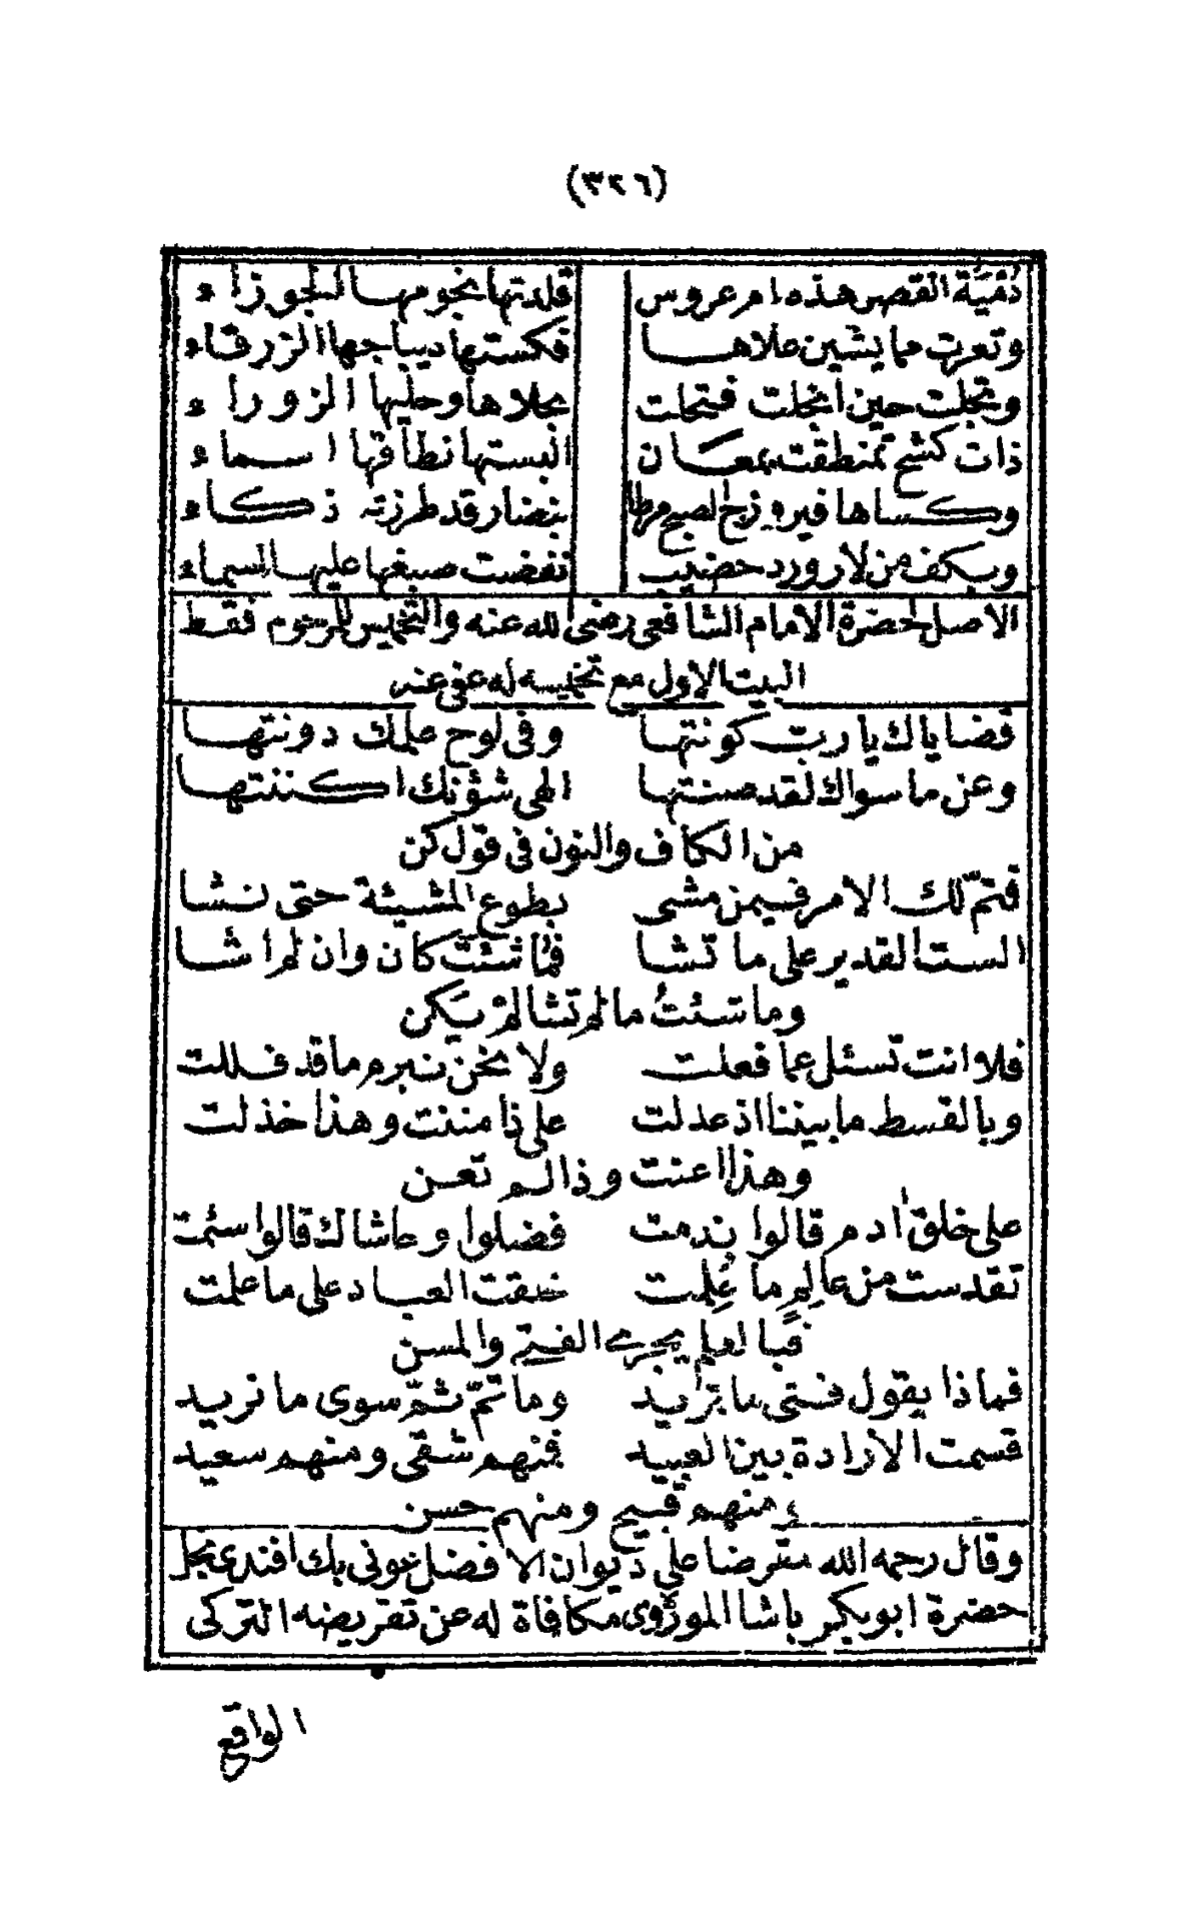 (٣٢٦)
دُمْيَةُ القصر هذه ام عروس قلدتها نجومها الجوزاء
وتعرت مما يشين علاها فكستها ديباجها الزرقاء
وتجلت حين انجلت فتحلت بحلاها وحليها الزوراء
ذات كشح تمنطقت بمعان البستها نطاقها اسماء
وكساها فيروزج الصبح مرطا بنضار قد طرزته ذكاء
وبكف من لازورد خضيب نفضت صبغها عليها السماء
الاصل لحضرة الامام الشافعى رضى الله عنه والتخميس للمرحوم فقط
البيت الاول مع تخميسه له عفى عنه
قضاياك يارب كونتها وفى لوح علمك دونتها
وعن ما سواك لقد صنتها الهى شؤنك اكننتها
من الكاف والنون فى قول كن
فتمّ لك الامر فيمن مشى بطوع المشيئة حتى نشا
الست القدير على ما تشا فما شئتَ كان وان لم اشا
وما شئتُ ما لم تشا لم يَكن
فلا انت تسئل عما فعلت ولا نحن نبرم ما قد فللت
وبالقسط ما بيننا اذ عدلت على ذا مننت وهذا خذلت
وهذا اعنت وذا لم تعن
على خلق ادم قالوا ندمت فضلوا وحاشاك قالوا سئمت
تقدست من عالِمٍ ما عُلِمت خلقت العباد على ما علمت
فبالعلم يجرى الفتى والمسن
فماذا يقول فتى ما يزيد وما تمّ ثمّ سوى ما تريد
قسمت الارادة بين العبيد فمنهم شقى ومنهم سعيد
ومنهم قبيح ومنهم حسن
وقال رحمه الله مقرضا على ديوان الافضل خونى بك افندى نجل
حضرة ابو بكر باشا الموڑوى مكافاة له عن تقريضه التركى
الواقع